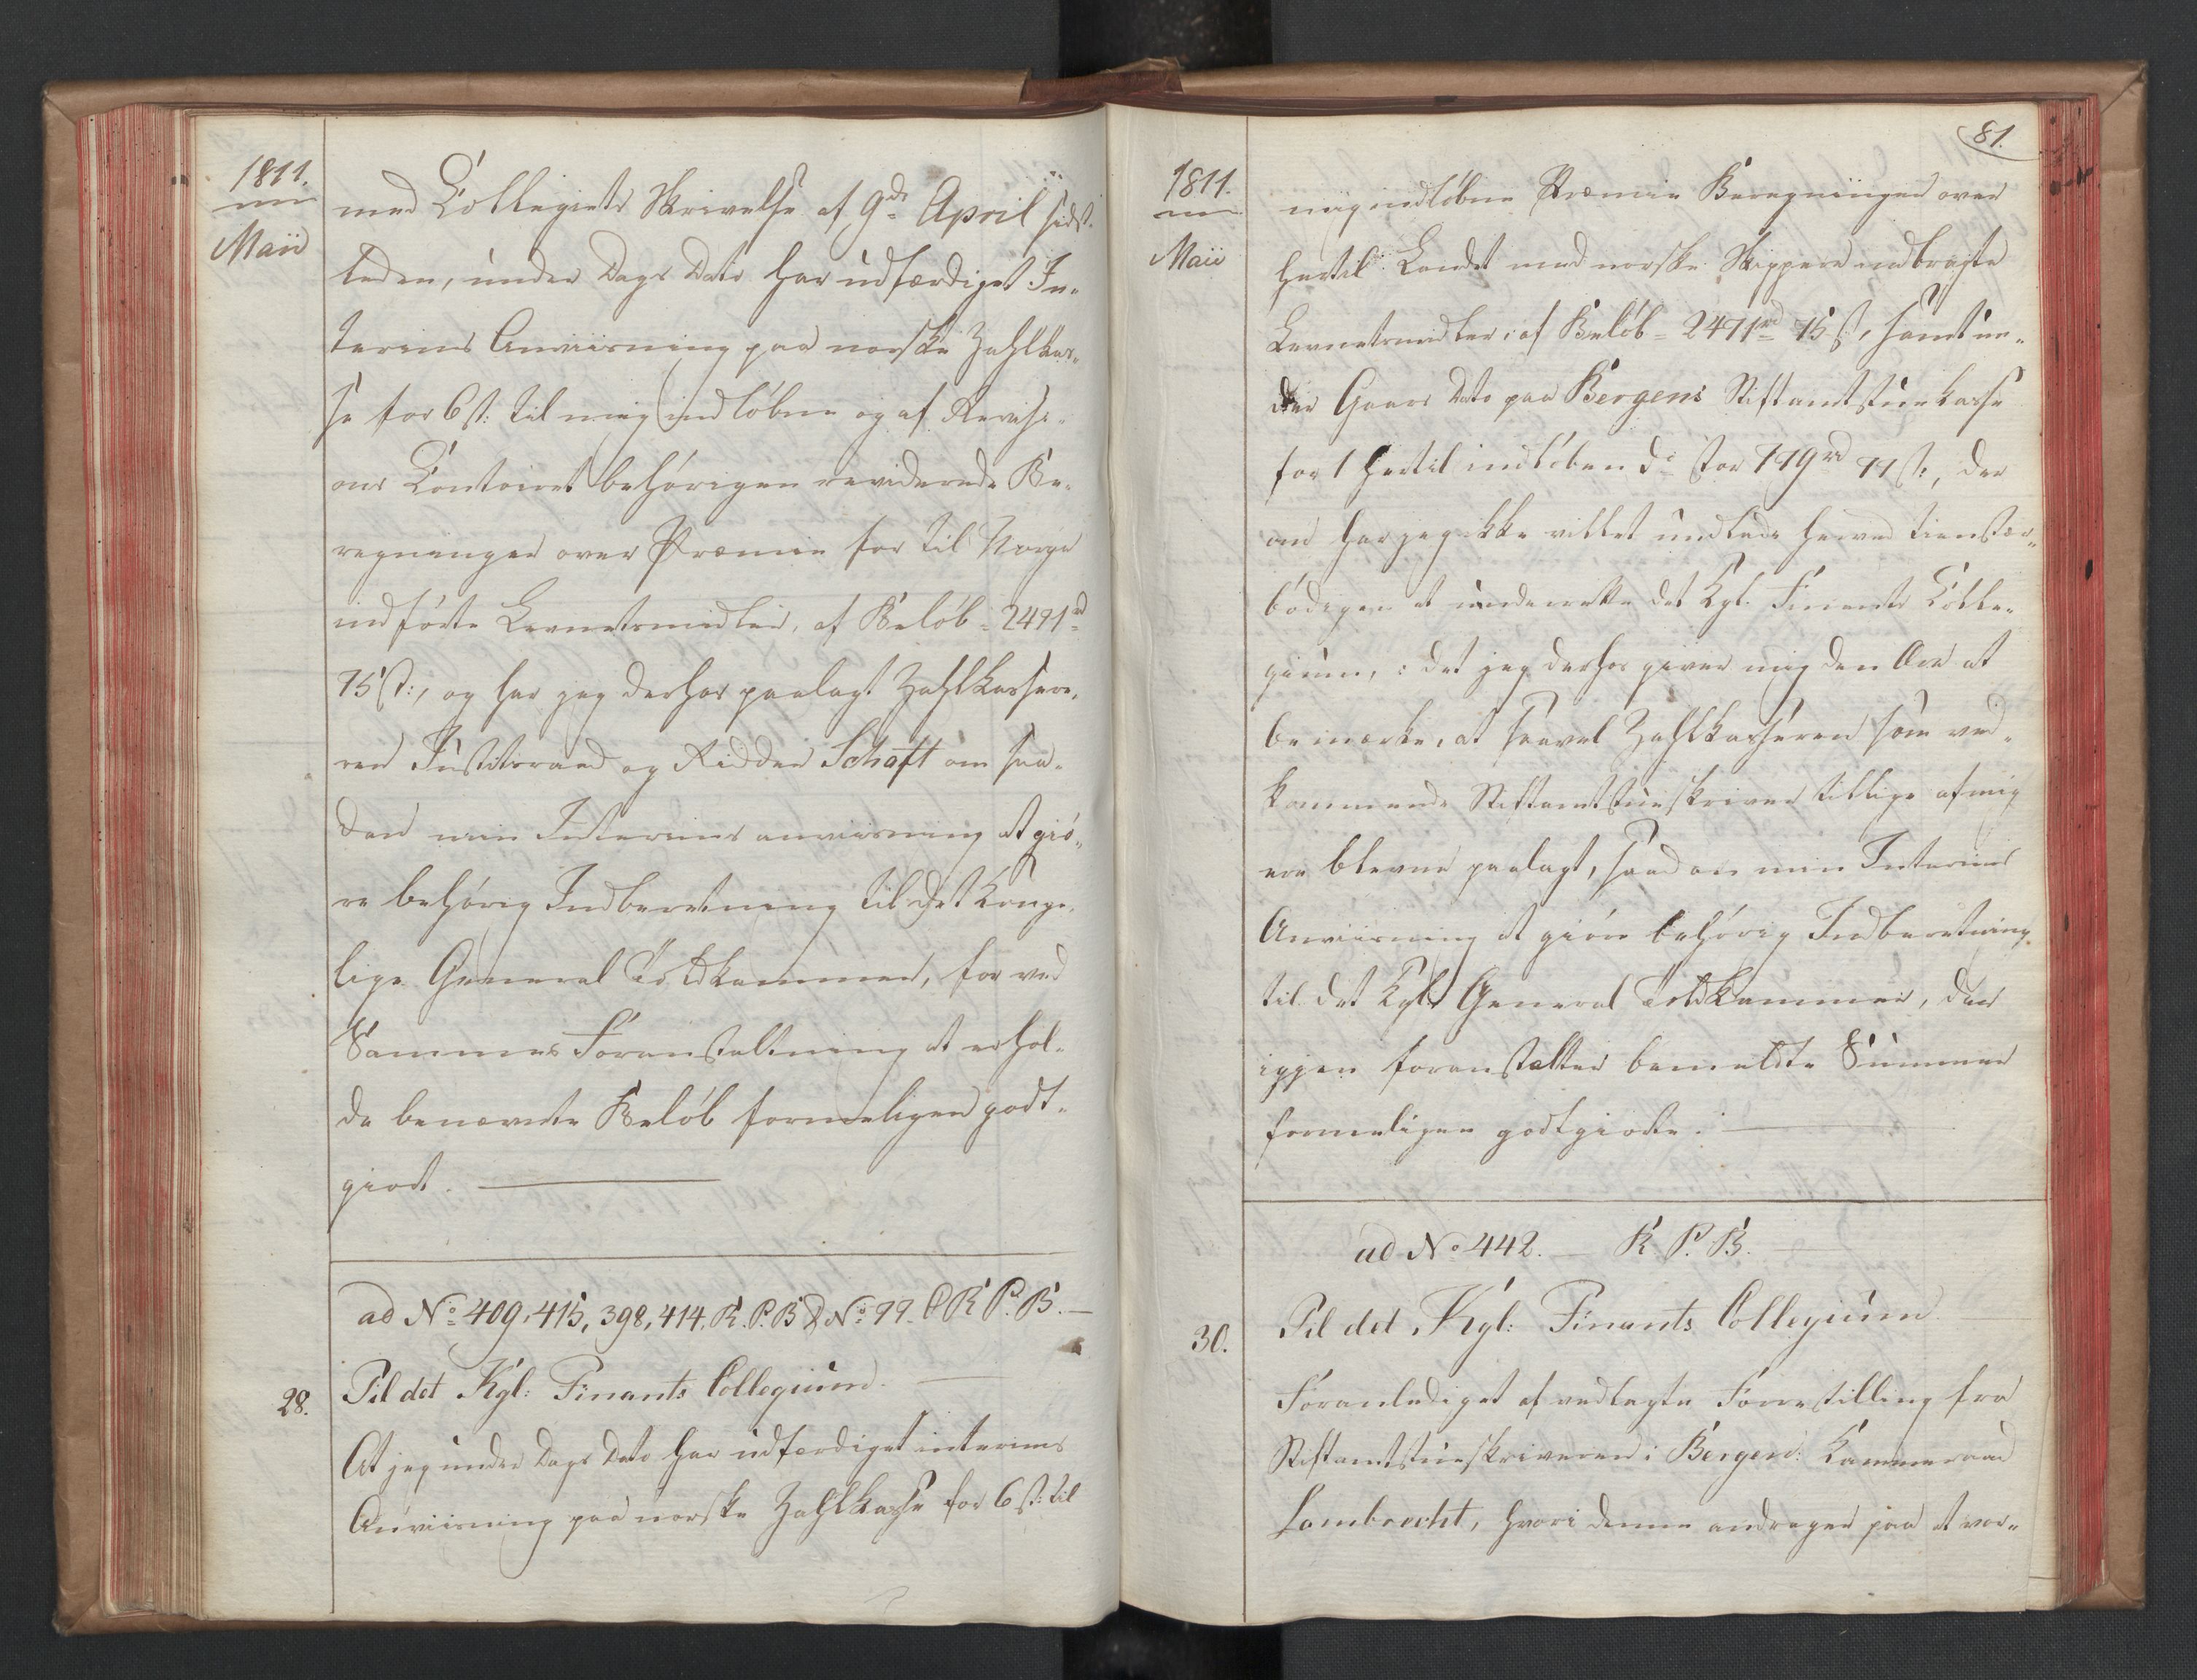 1811.
Maii
med Collegiets Skrivelse af 9de April sidst-
leden, under Dags Dato har udfærdiget In-
terims Anviisning paa norske Zahlkas-
se for 6 st: til mig indløbne og af Revisi-
ons Contoiret behørigen reviderede Be-
regninger over Præmie for til Norge
indførte Levnetsmidler, af Beløb = 2491rd
75 s:, og har jeg derhos paalagt Zahlkassere-
ren Justitsraad og Ridder Schaft om saa-
dan min Interims anviisning at giø-
re behørig Indberetning til det Konge-
lige General Toldkammer, for ved
Sammes Foranstaltning at erhol-
de benævnte Beløb formeligen godt-
giort.
ad No 409, 415, 398, 414. K. P. B & No 99. C K P. B.
28.
Til det Kgl: Finants Collegium.
At jeg under Dags Dato har udfærdiget interims
Anviisning paa norske Zahlkasse for 6 st: til
81.
1811.
Maii
mig indløbne Præmie Beregninger over
hertil Landet med norske Skippere indbragte
Levnetsmidler, af Beløb = 2471rd 75 s, samt un-
der Gaars Dato paa Bergens Stiftamtstuekasse
for 1 hertil indløben do stor 199rd 71 s:, der
om har jeg ikke villet undlade herved tienstær-
bødigen at underrette det Kgl. Finants Colle-
gium, i det jeg derhos giver mig den Ære at
bemærke, at saavel Zahlkasseren som ved-
kommende Stiftamtstueskriver tillige af mig
ere blevne paalagt, saadan min Interims
Anviisning at giøre behørig Indberetning
til det Kgl. General Toldkammer, der
igjen foranstalter bemeldte Summer
formeligen godtgiorte.
ad No 442. — K P. B.
30.
Til det Kgl: Finants Collegium
Foranlediget af vedlagte Forestilling fra
Stiftamtstueskriveren i Bergen: Kammerraad
Lambrecht, hvori denne andrager paa at vor-